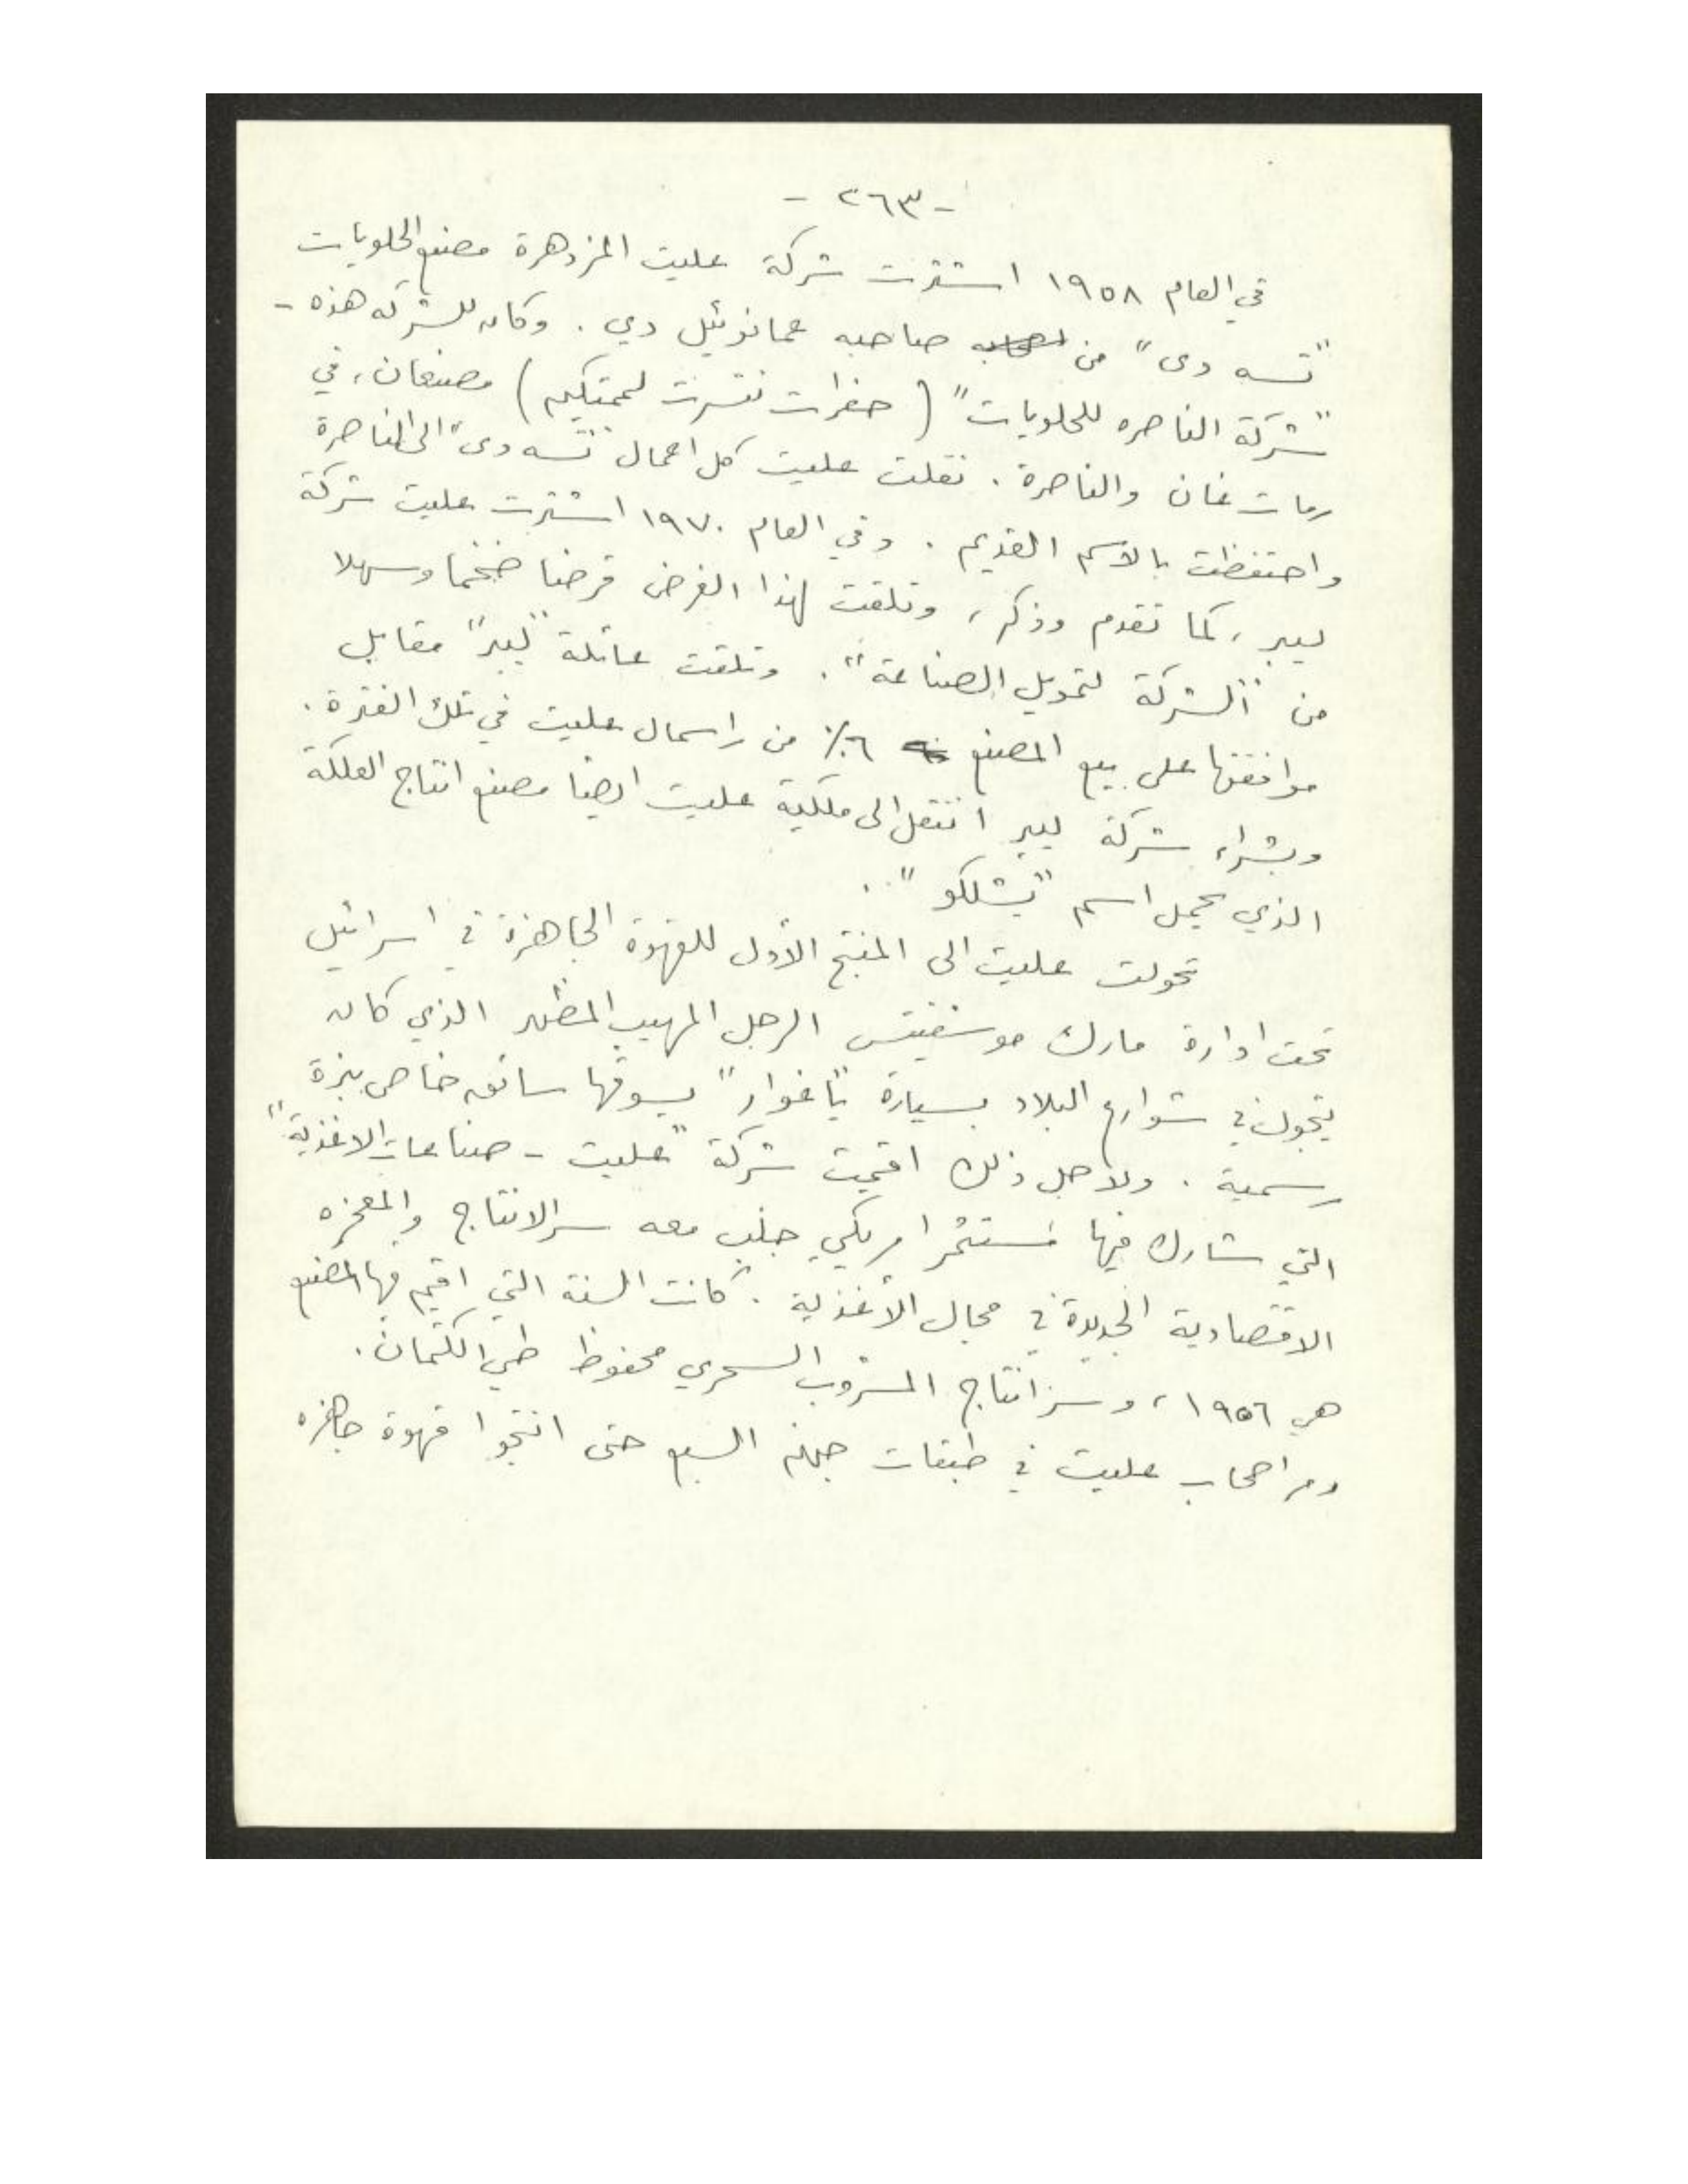 - ٢٦٣ -
في العام ١٩٥٨ اشترت شركة عليت المزدهرة مصنع الحلويات
"تسه دى" من صاحبه عمانوئيل دي . وكان للشركه هذه -
"شركة الناصره للحلويات" ( حفرات نتسرت لممتكيم ) مصنعان ، في
رمات غان والناصرة . نقلت عليت كل اعمال "تسه دى" الى الناصرة
واحتفظت بالأسم القديم . وفي العام ١٩٧٠ اشترت عليت شركة
ليبر ، كما تقدم وذكر ، وتلقت لهذا الغرض قرضا ضخما وسهلا
من "الشركة لتمويل الصناعة" . وتلقت عائلة "ليبر" مقابل
موافقتها على بيع المصنع ٦٪ من راسمال عليت في تلك الفترة .
وبشراء شركة ليبر انتقل الى ملكية عليت ايضا مصنع انتاج العلكة
الذي يحمل اسم "بشلكو" ..
تحولت عليت الى المنتج الأول للقهوة الجاهزة في اسرائيل
تحت ادارة مارك موسفيتس الرجل المهيب المظهر الذي كان
يتجول في شوارع البلاد بسيارة "ياغوار" يسوقها سائق خاص ببزة
رسمية . ولأجل ذلك اقيمت شركة "عليت - صناعات الاغذية"
التي شارك فيها مستثمر امريكي جلب معه سر الانتاج والمعجزه
الاقتصادية الجديدة في مجال الأغذية . كانت السنة التي اقيم فيها المصنع
هي ١٩٥٦ ، وسر انتاج المشروب السحري محفوظ طي الكتمان .
ومر اصحاب عليت في طبقات جهنم السبع حتى انتجوا قهوة جاهزه